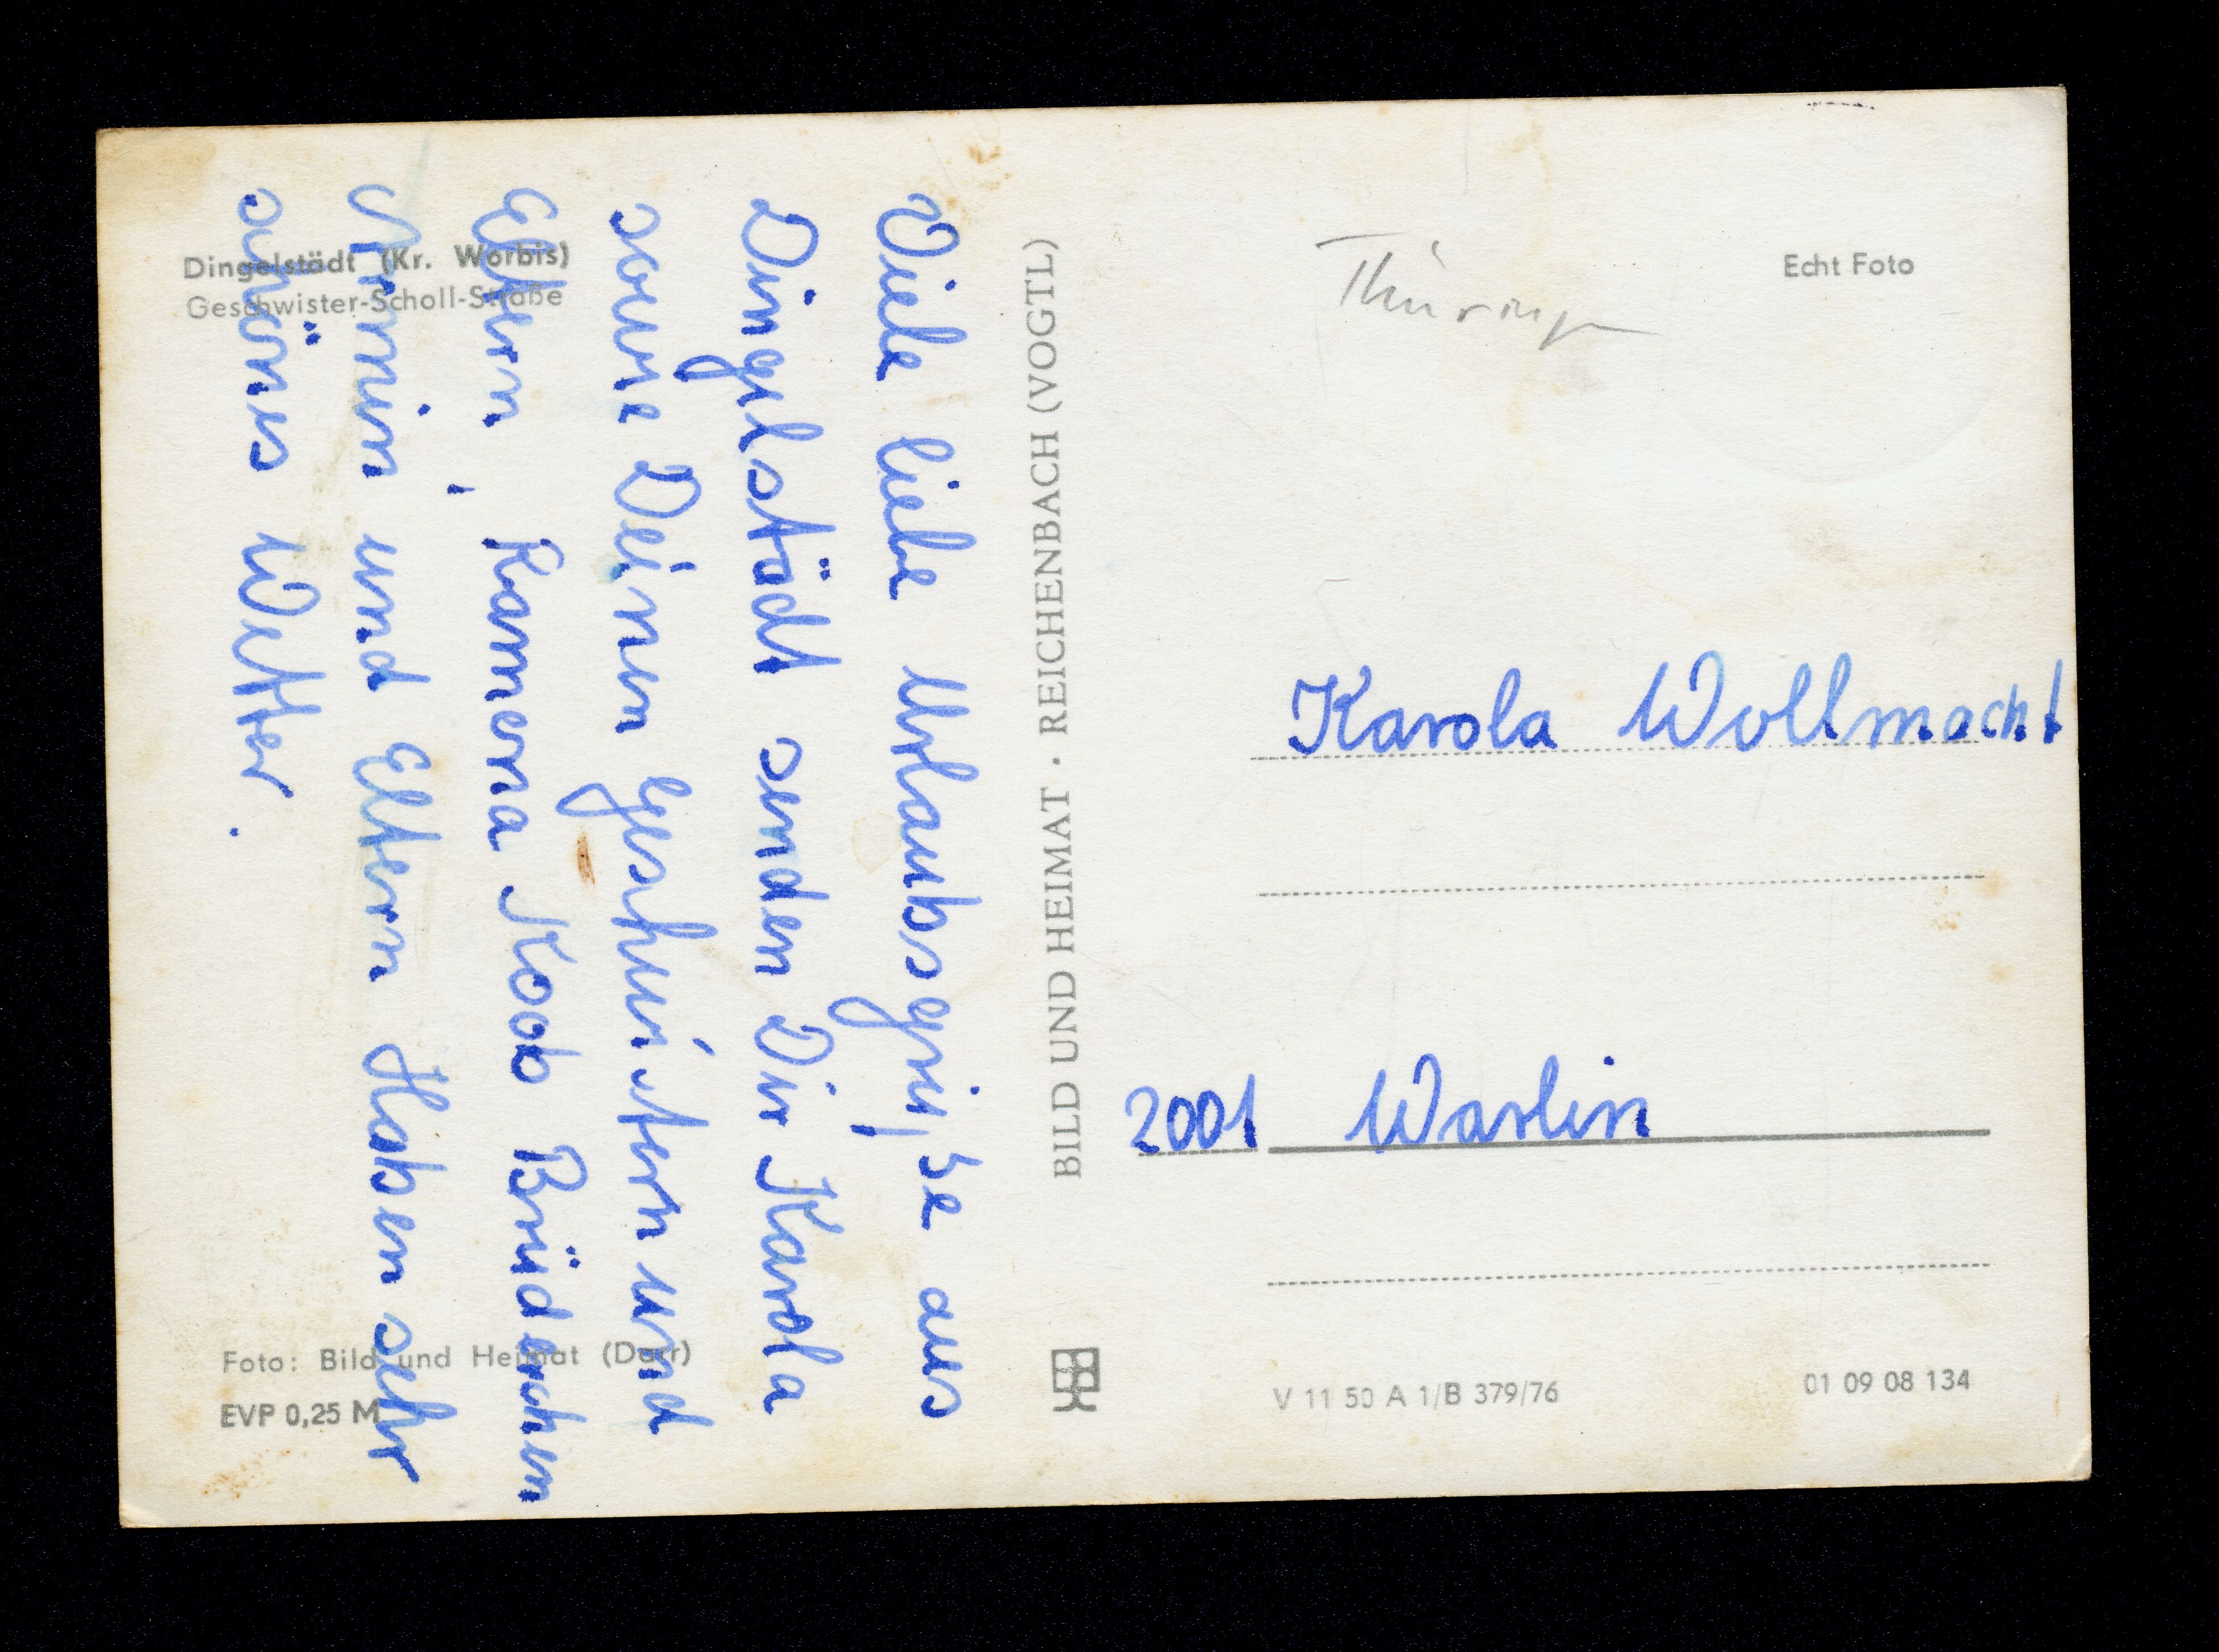 Dingelstädt (Kr. Worbis)
Geschwister-Scholl-Straße
Viele liebe Urlaubsgrüße aus
Dingelstädt senden Dir Karola
sowie Deinen Geschwistern und
Eltern, Ramona Koob Brüderchen
Armin und Eltern Haben sehr
schönes Wetter.
Foto: Bild und Heimat (Darr)
EVP 0,25 M
BILD UND HEIMAT · REICHENBACH (VOGTL)
Thüringen
Echt Foto
Karola Wollmacht
2001 Warlin
V 11 50 A 1/B 379/76
01 09 08 134